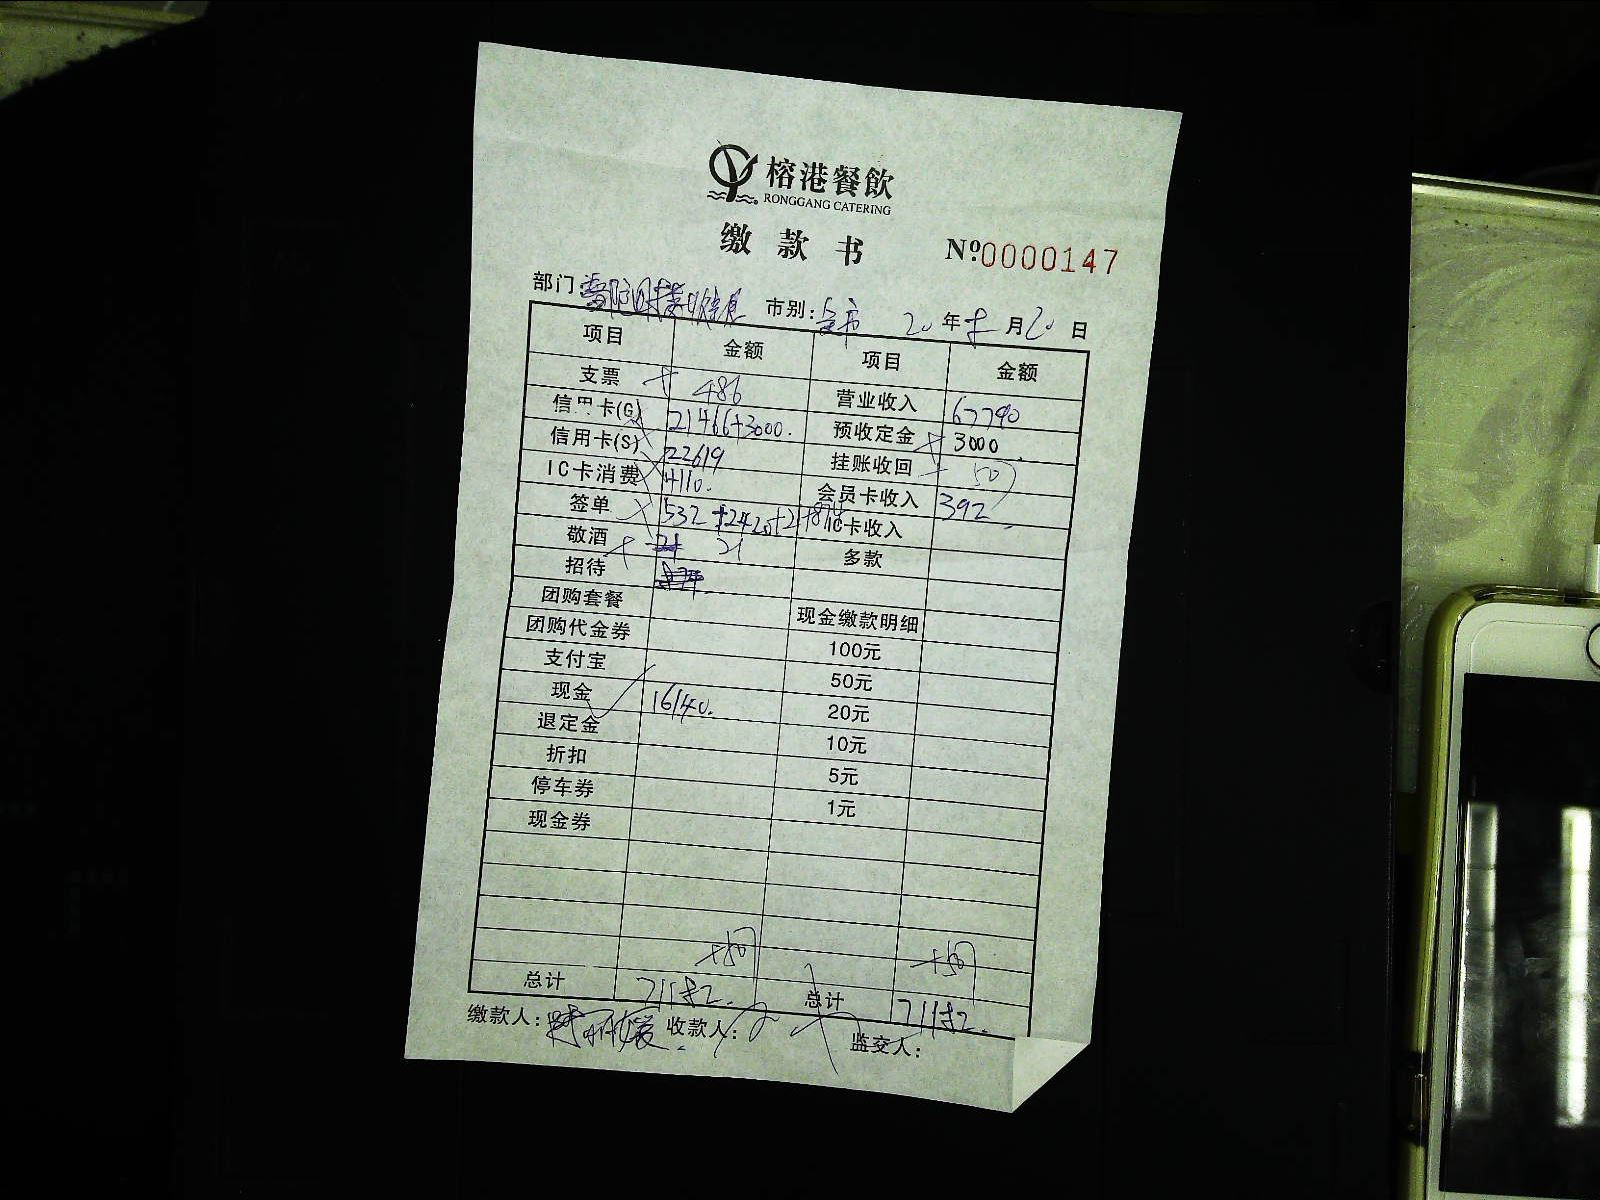 榕港餐飲
RONGGANG CATERING
缴款书 Nº0000147
部门: 市别: 全市 20 年 月 20 日
项目 金额 项目 金额
支票 486 营业收入 67790
信用卡(G) 21466+3000. 预收定金 3000
信用卡(S) 22619 挂账收回 50
IC卡消费 4110. 会员卡收入 392
签单 532 IC卡收入
敬酒 21 多款
招待
团购套餐 现金缴款明细
团购代金券 100元
支付宝 50元
现金 16140. 20元
退定金 10元
折扣 5元
停车券 1元
现金券
+50 +50
总计 总计
缴款人: 收款人: 监交人: